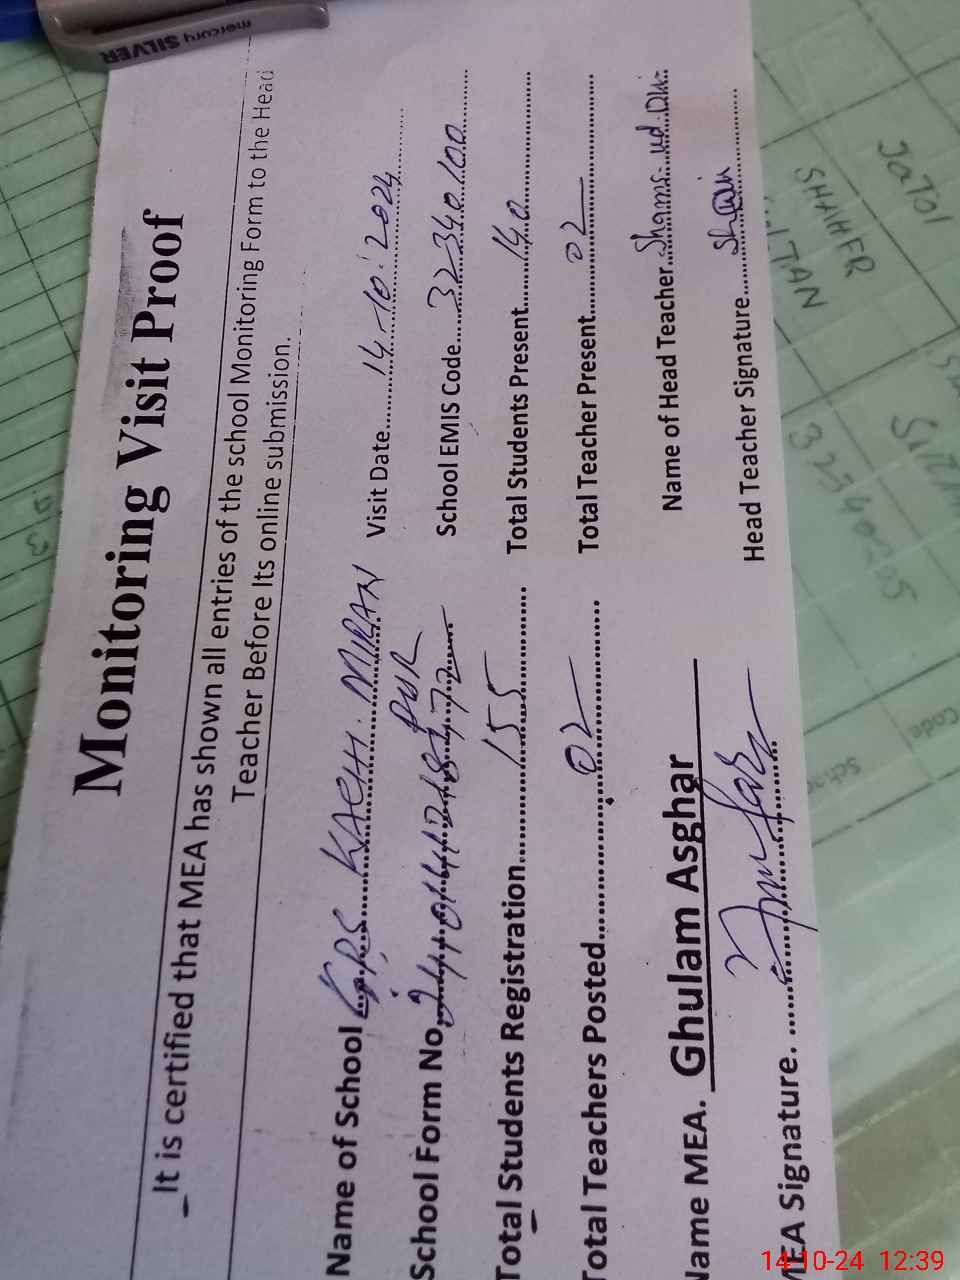 mercury SILVER
Monitoring Visit Proof
It is certified that MEA has shown all entries of the school Monitoring Form to the Head
Teacher Before Its online submission.
Name of School GPS KACHI MIRAN PUR Visit Date 14-10-2024
School Form No School EMIS Code 32340100
Total Students Registration 155 Total Students Present 140
Total Teachers Posted 02 Total Teacher Present 02
Name MEA. Ghulam Asghar Name of Head Teacher Shams ud Din
MEA Signature. Head Teacher Signature
JATOI
SHAHER
SULTAN
Code
14-10-24 12:39